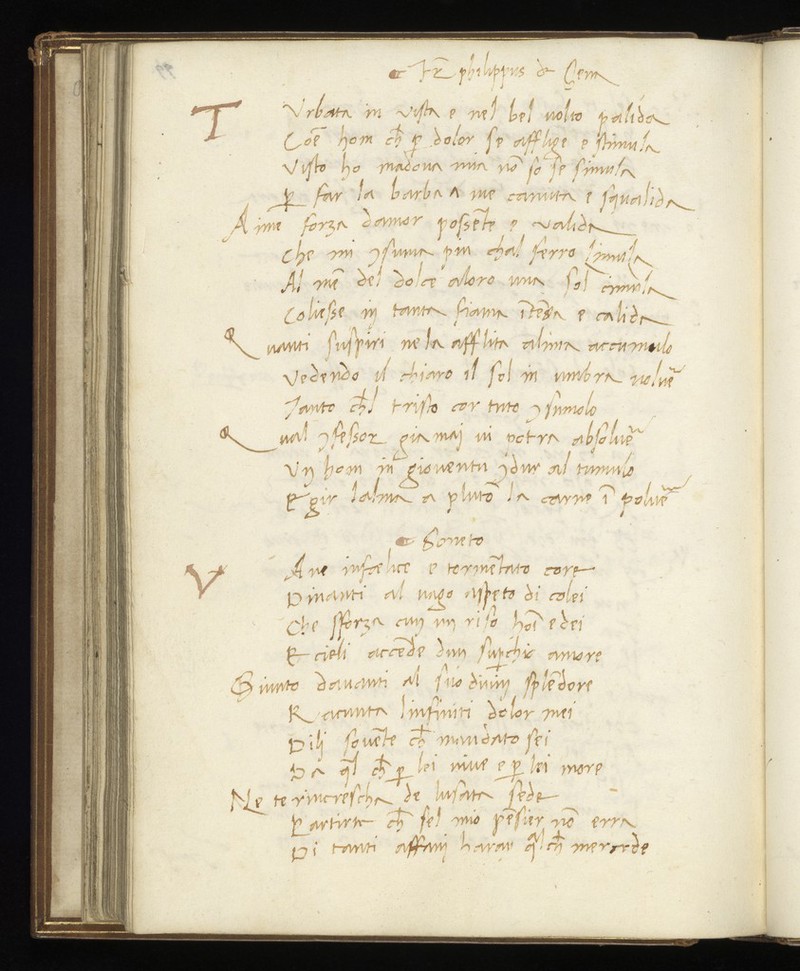 Fr̄ philippus de Cena
T Vrbata in vista e nel bel uolto palida
Coē hom ch̄ ꝑ dolor se afflige e stimula
Visto ho madona mia nō so se simula
ꝑ far la barba a me canuta e squalida
Aime forza damor possēte e valida
Che mi ꝯsuma piu chal ferro limula
Al mē del dolce aloro una sol cimula
Coliesse in tanta fiama ītēsa e calida
Quanti suspiri nela afflita alima accumulo
Vedendo il chiaro il sol in umbra uoluē
Tanto ch̄l tristo cor tuto ꝯsumolo
Qual ꝯfessor gia mai ui potra absoluē
Vn hom in gioventu ꝯdur al tumulo
E gir lalma a plutō la carne ī poluē
Soneto
V Ane infœlice e tormētato core
Dinanti al uago aspeto di colei
Che sforza cun un riso hoī e dei
E cieli accēde dun suꝑchio amore
Giunto dauanti al suo diuin splēdore
Racunta linfiniti dolor mei
Dili souēte ch̄ mandato sei
Da q̄l ch̄ ꝑ lei uiue e ꝑ lei more
Ne te rincrescha de lusata sede
Partirte ch̄ sel mio pēsier nō erra
Di tanti affanj harai q̄lch̄ mercede